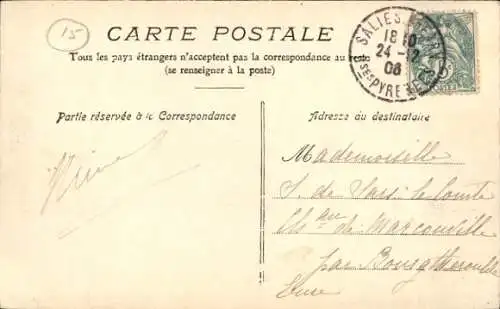 15
CARTE POSTALE
Tous les pays étrangers n'acceptent pas la correspondance au
(se renseigner à la poste)
SALIES
18 10
24-12
06
Bses PYRÉNÉES
Partie réservée à la Correspondance
Adresse au destinataire
Mademoiselle
S. de le Comte
Ch au de Marcouville
par Bourgtheroulde
Eure